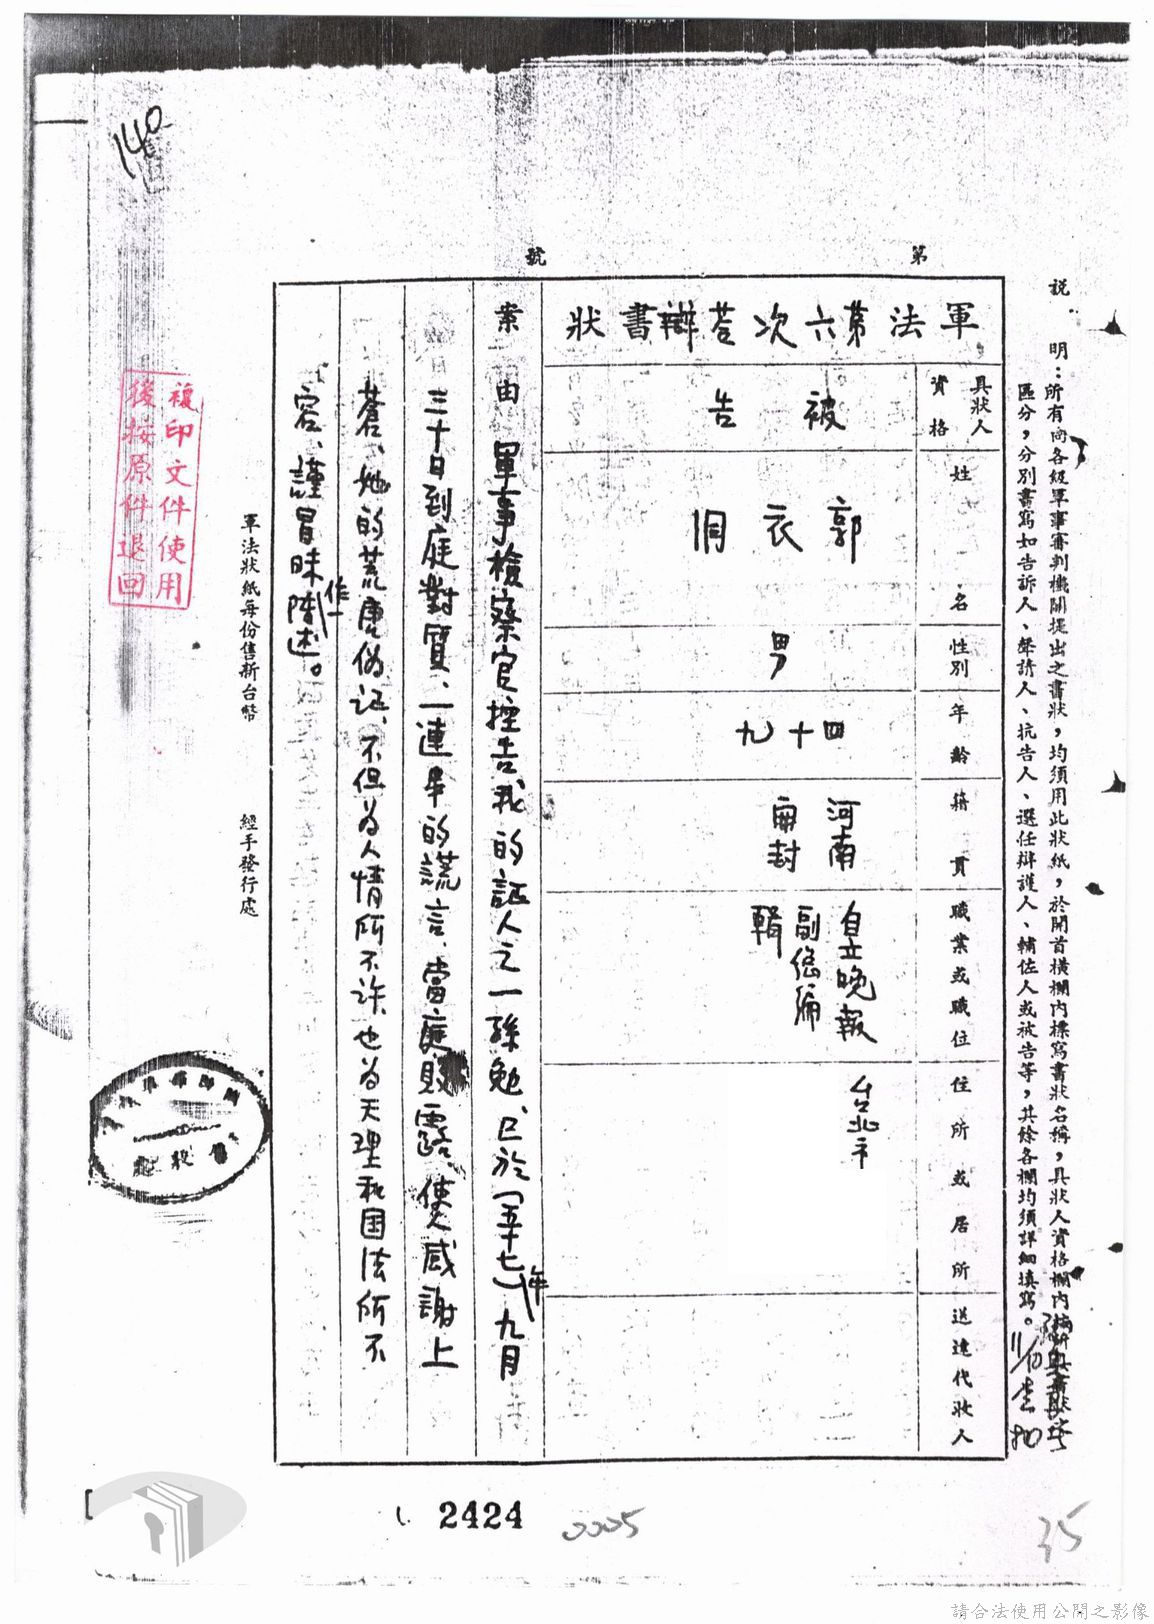 140
第 號
說 明:所有向各級軍事審判機關提出之書狀,均須用此狀紙,於開首橫欄內標寫書狀名稱,具狀人資格欄內
區分,分別書寫如告訴人、聲請人、抗告人、選任辯護人、輔佐人或被告等,其餘各欄均須詳細填寫。
軍法第六次荅辯書狀
具狀人資格
被告
姓名
郭衣洞
性別
男
年齡
四十九
籍貫
河南
開封
職業或職位
自立晚報
副總編
輯
住所或居所
台北市
送達代收人
案由 軍事檢察官控告我的証人之一孫勉、已於(五十七)年九月
三十日到庭對質、一連串的謊言、當庭敗露、使人感謝上
蒼、她的荒唐偽証、不但為人情所不許、也為天理和国法所不
容、謹冒昧作一陳述。
軍法狀紙每份售新台幣
經手發行處
複印文件使用
後按原件退回
2424
0005
35
請合法使用公開之影像